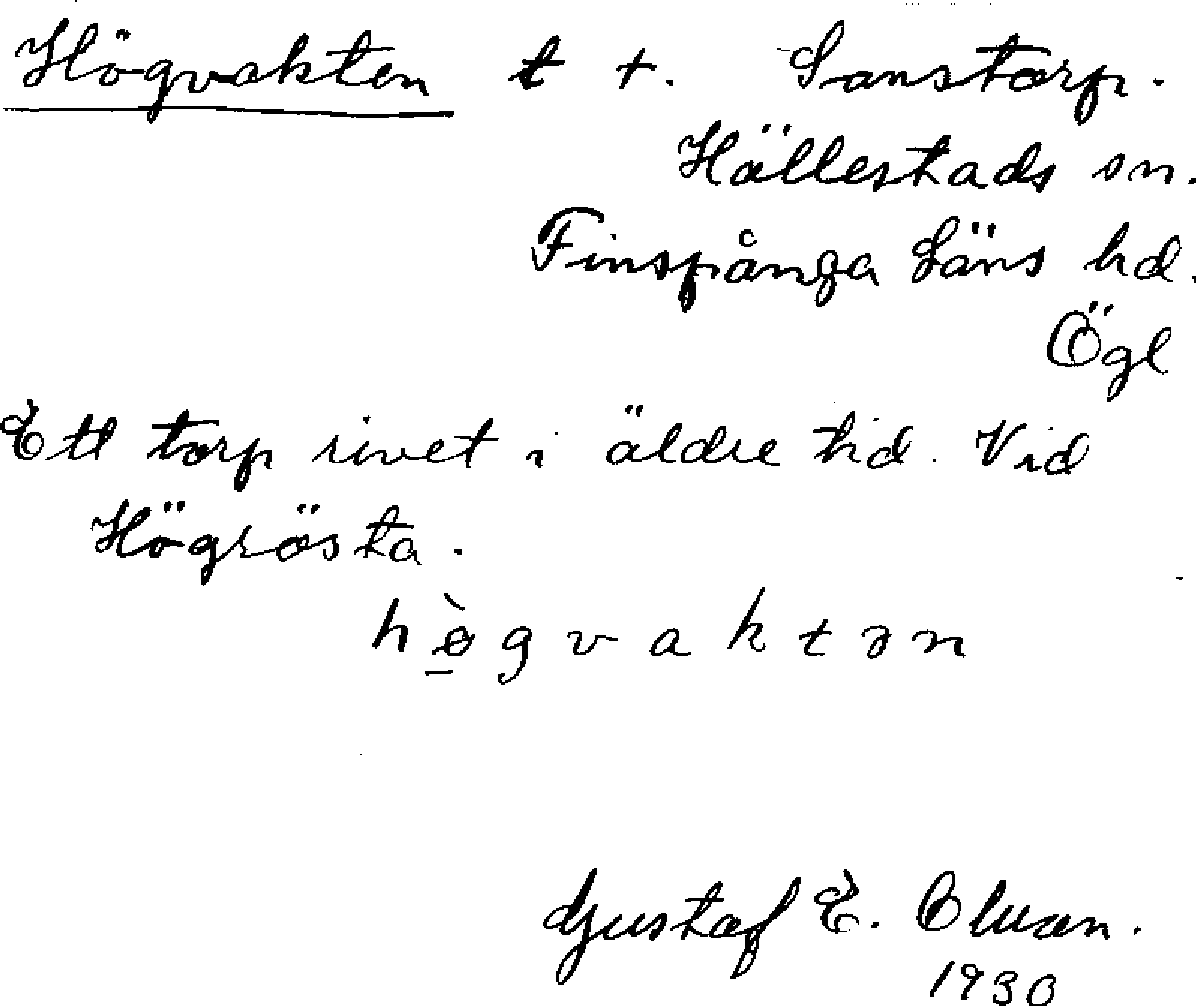 Högvakten t +. Sanstorp.
Hällestads sn.
Finspånga Läns hd.
Ögl
Ett torp rivet i äldre tid. Vid
Högrösta.
hø̀gvaktən
Gustaf E.
1930